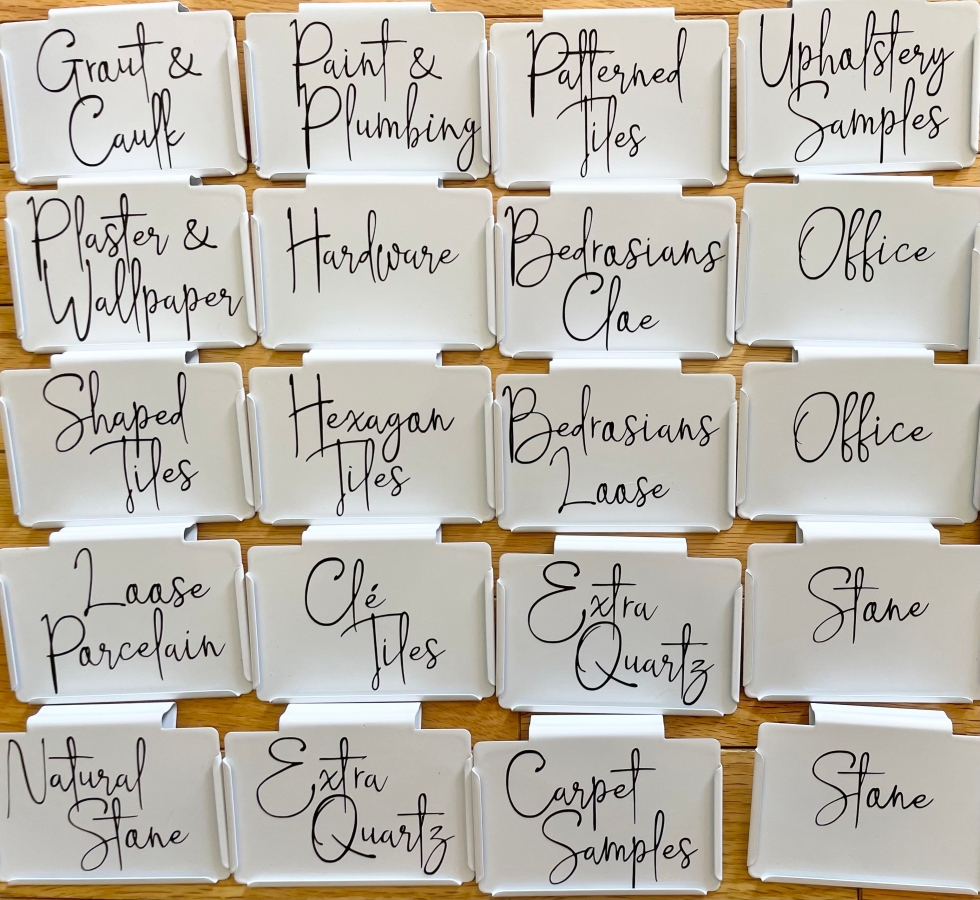 Grout &
Caulk
Paint &
Plumbing
Patterned
Tiles
Upholstery
Samples
Plaster &
Wallpaper
Hardware
Bedrosians
Cloe
Office
Shaped
Tiles
Hexagon
Tiles
Bedrosians
Loose
Office
Loose
Porcelain
Clé
Tiles
Extra
Quartz
Stone
Natural
Stone
Extra
Quartz
Carpet
Samples
Stone